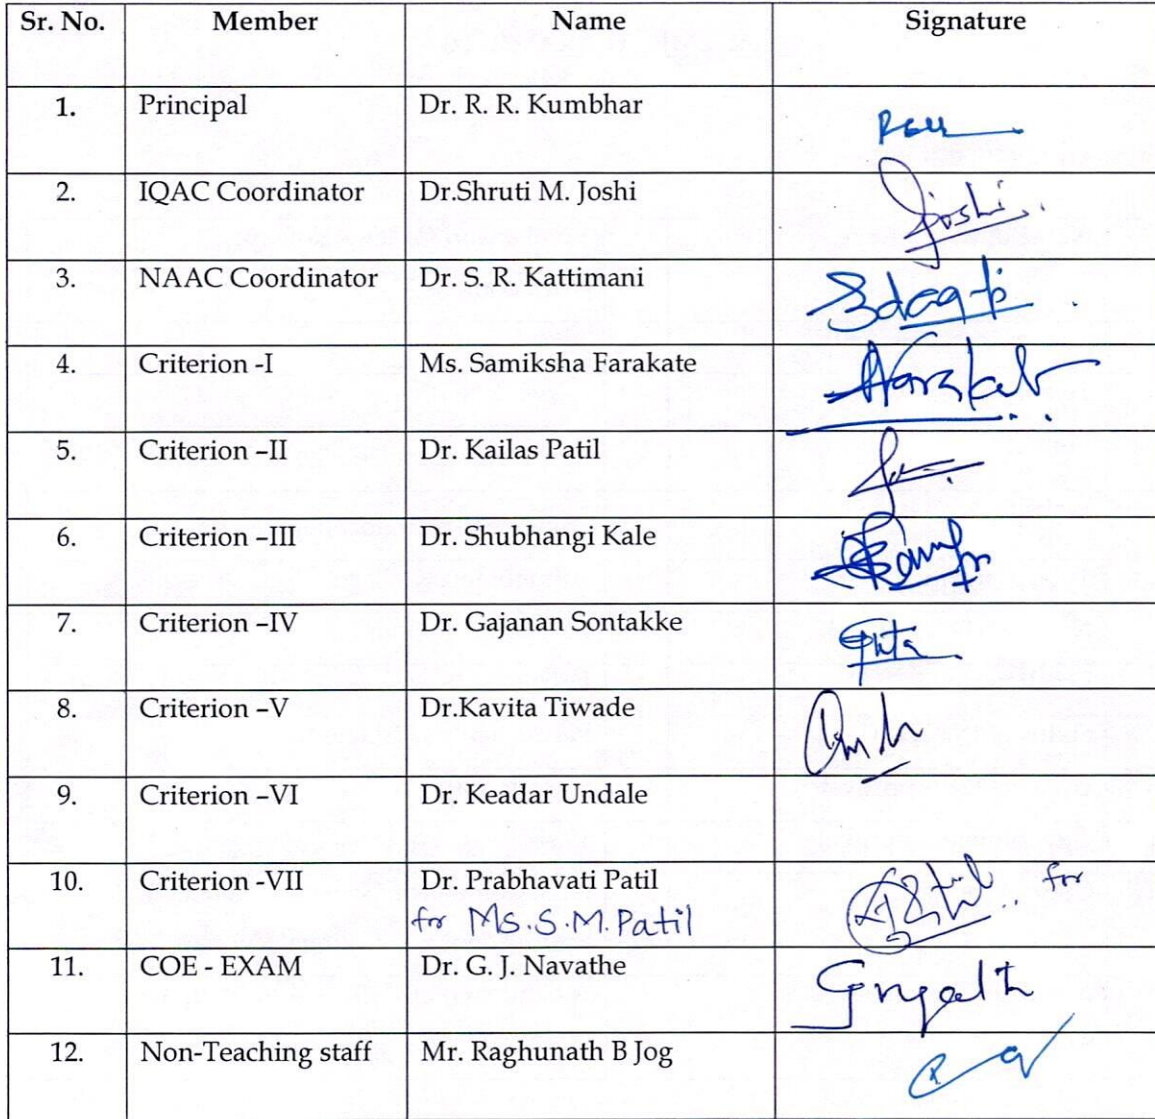 Sr. No. Member Name Signature
1. Principal Dr. R. R. Kumbhar
2. IQAC Coordinator Dr.Shruti M. Joshi Joshi
3. NAAC Coordinator Dr. S. R. Kattimani
4. Criterion -I Ms. Samiksha Farakate
5. Criterion –II Dr. Kailas Patil
6. Criterion –III Dr. Shubhangi Kale
7. Criterion –IV Dr. Gajanan Sontakke
8. Criterion –V Dr.Kavita Tiwade
9. Criterion –VI Dr. Keadar Undale
10. Criterion -VII Dr. Prabhavati Patil for
for Ms.S.M.Patil
11. COE - EXAM Dr. G. J. Navathe
12. Non-Teaching staff Mr. Raghunath B Jog